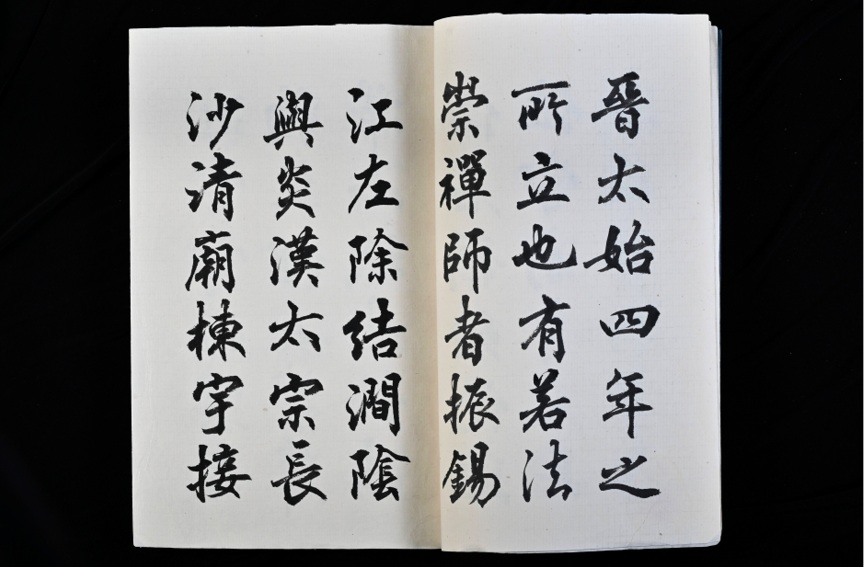 晉太始四年之
所立也有若法
崇禪師者振錫
江左除結澗陰
與炎漢太宗長
沙清廟棟宇接